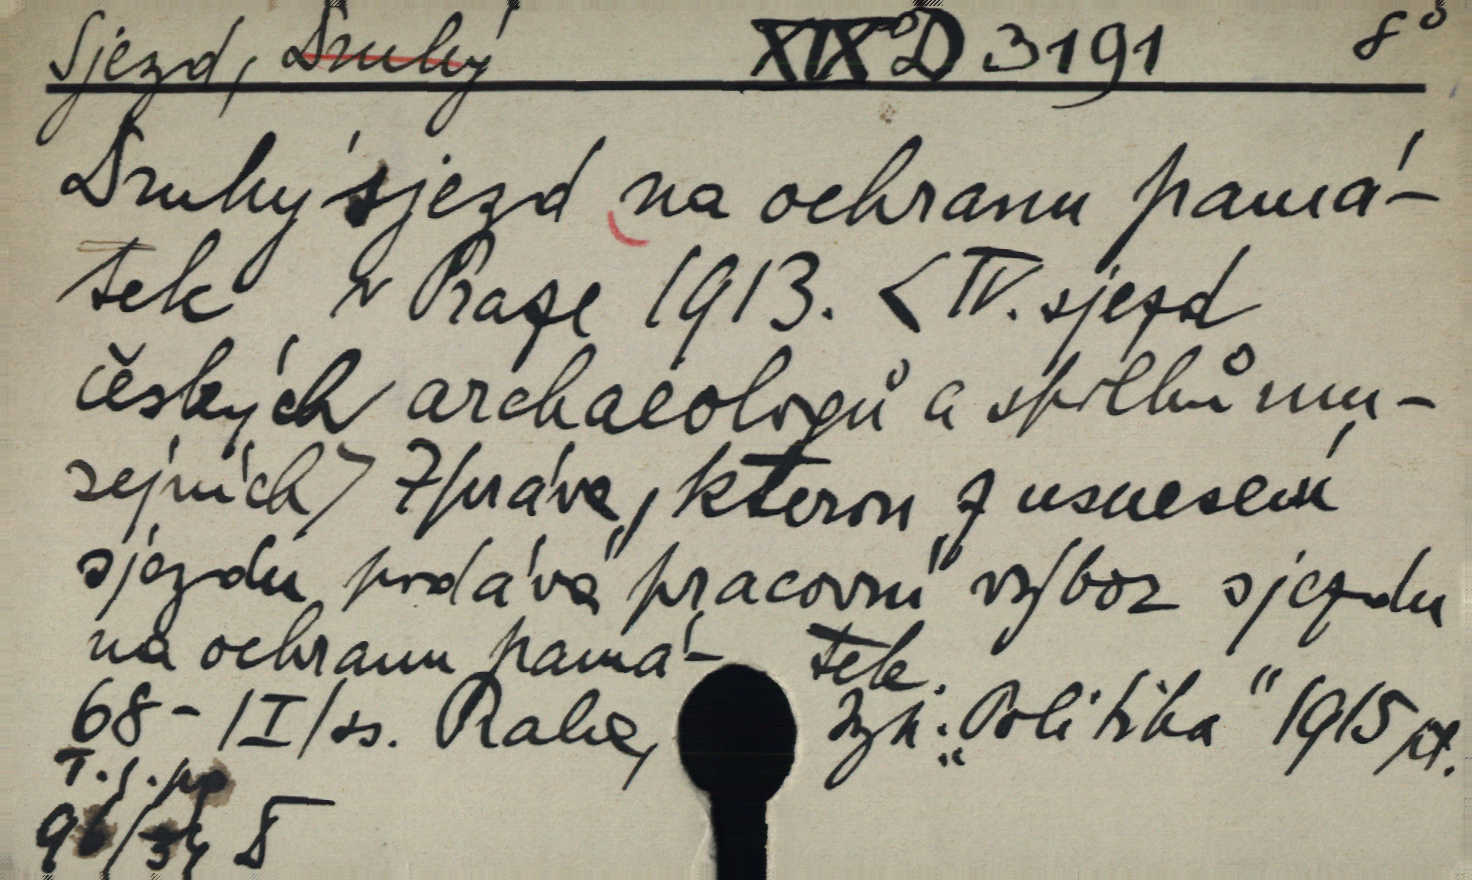 Sjezd, Druhý XIX D 3191 8°
Druhý sjezd na ochranu pamá-
tek v Praze 1913. <IV. sjezd
českých archaeologů a spolků mu-
sejních> Zpráva, kterou z usnesení
sjezdu podává pracovní výbor sjezdu
na ochranu pamá- tek.
68 - /I/ ss. Praha, Tzk. „Politika" 1915